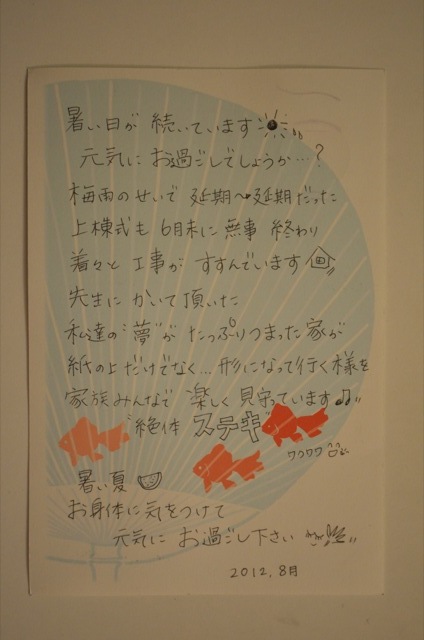 暑い日が 続いています
元気に お過ごしでしょうか…?
梅雨のせいで 延期〜延期だった
上棟式も 6月末に 無事 終わり
着々と 工事が すすんでいます
先生に かいて頂いた
私達の “夢”が たっぷりつまった 家が
紙の上だけでなく… 形になって行く様を
家族みんなで 楽しく 見守っています♫
絶体 ステキ
ワクワク
暑い夏
お身体に 気をつけて
元気に お過ごし下さい
2012.8月